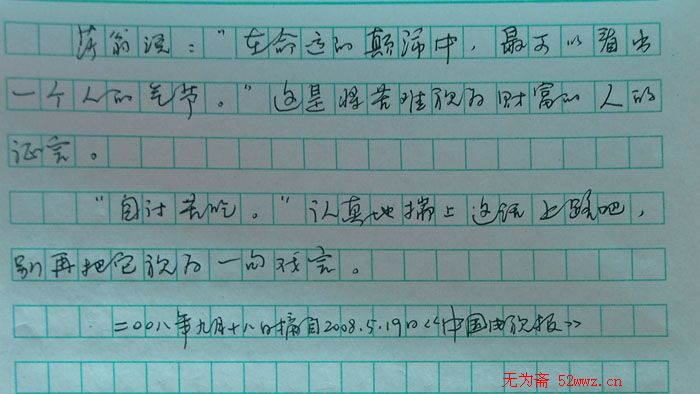 莎翁说："在命运的颠沛中，最可以看出
一个人的气节。"这是将苦难视为财富的人的
证言。
"自讨苦吃。"认真地揣上这话上路吧，
别再把它视为一句戏言。
二00八年九月十八日摘自2008.5.19日《中国电视报》
无为斋 52wwz.cn